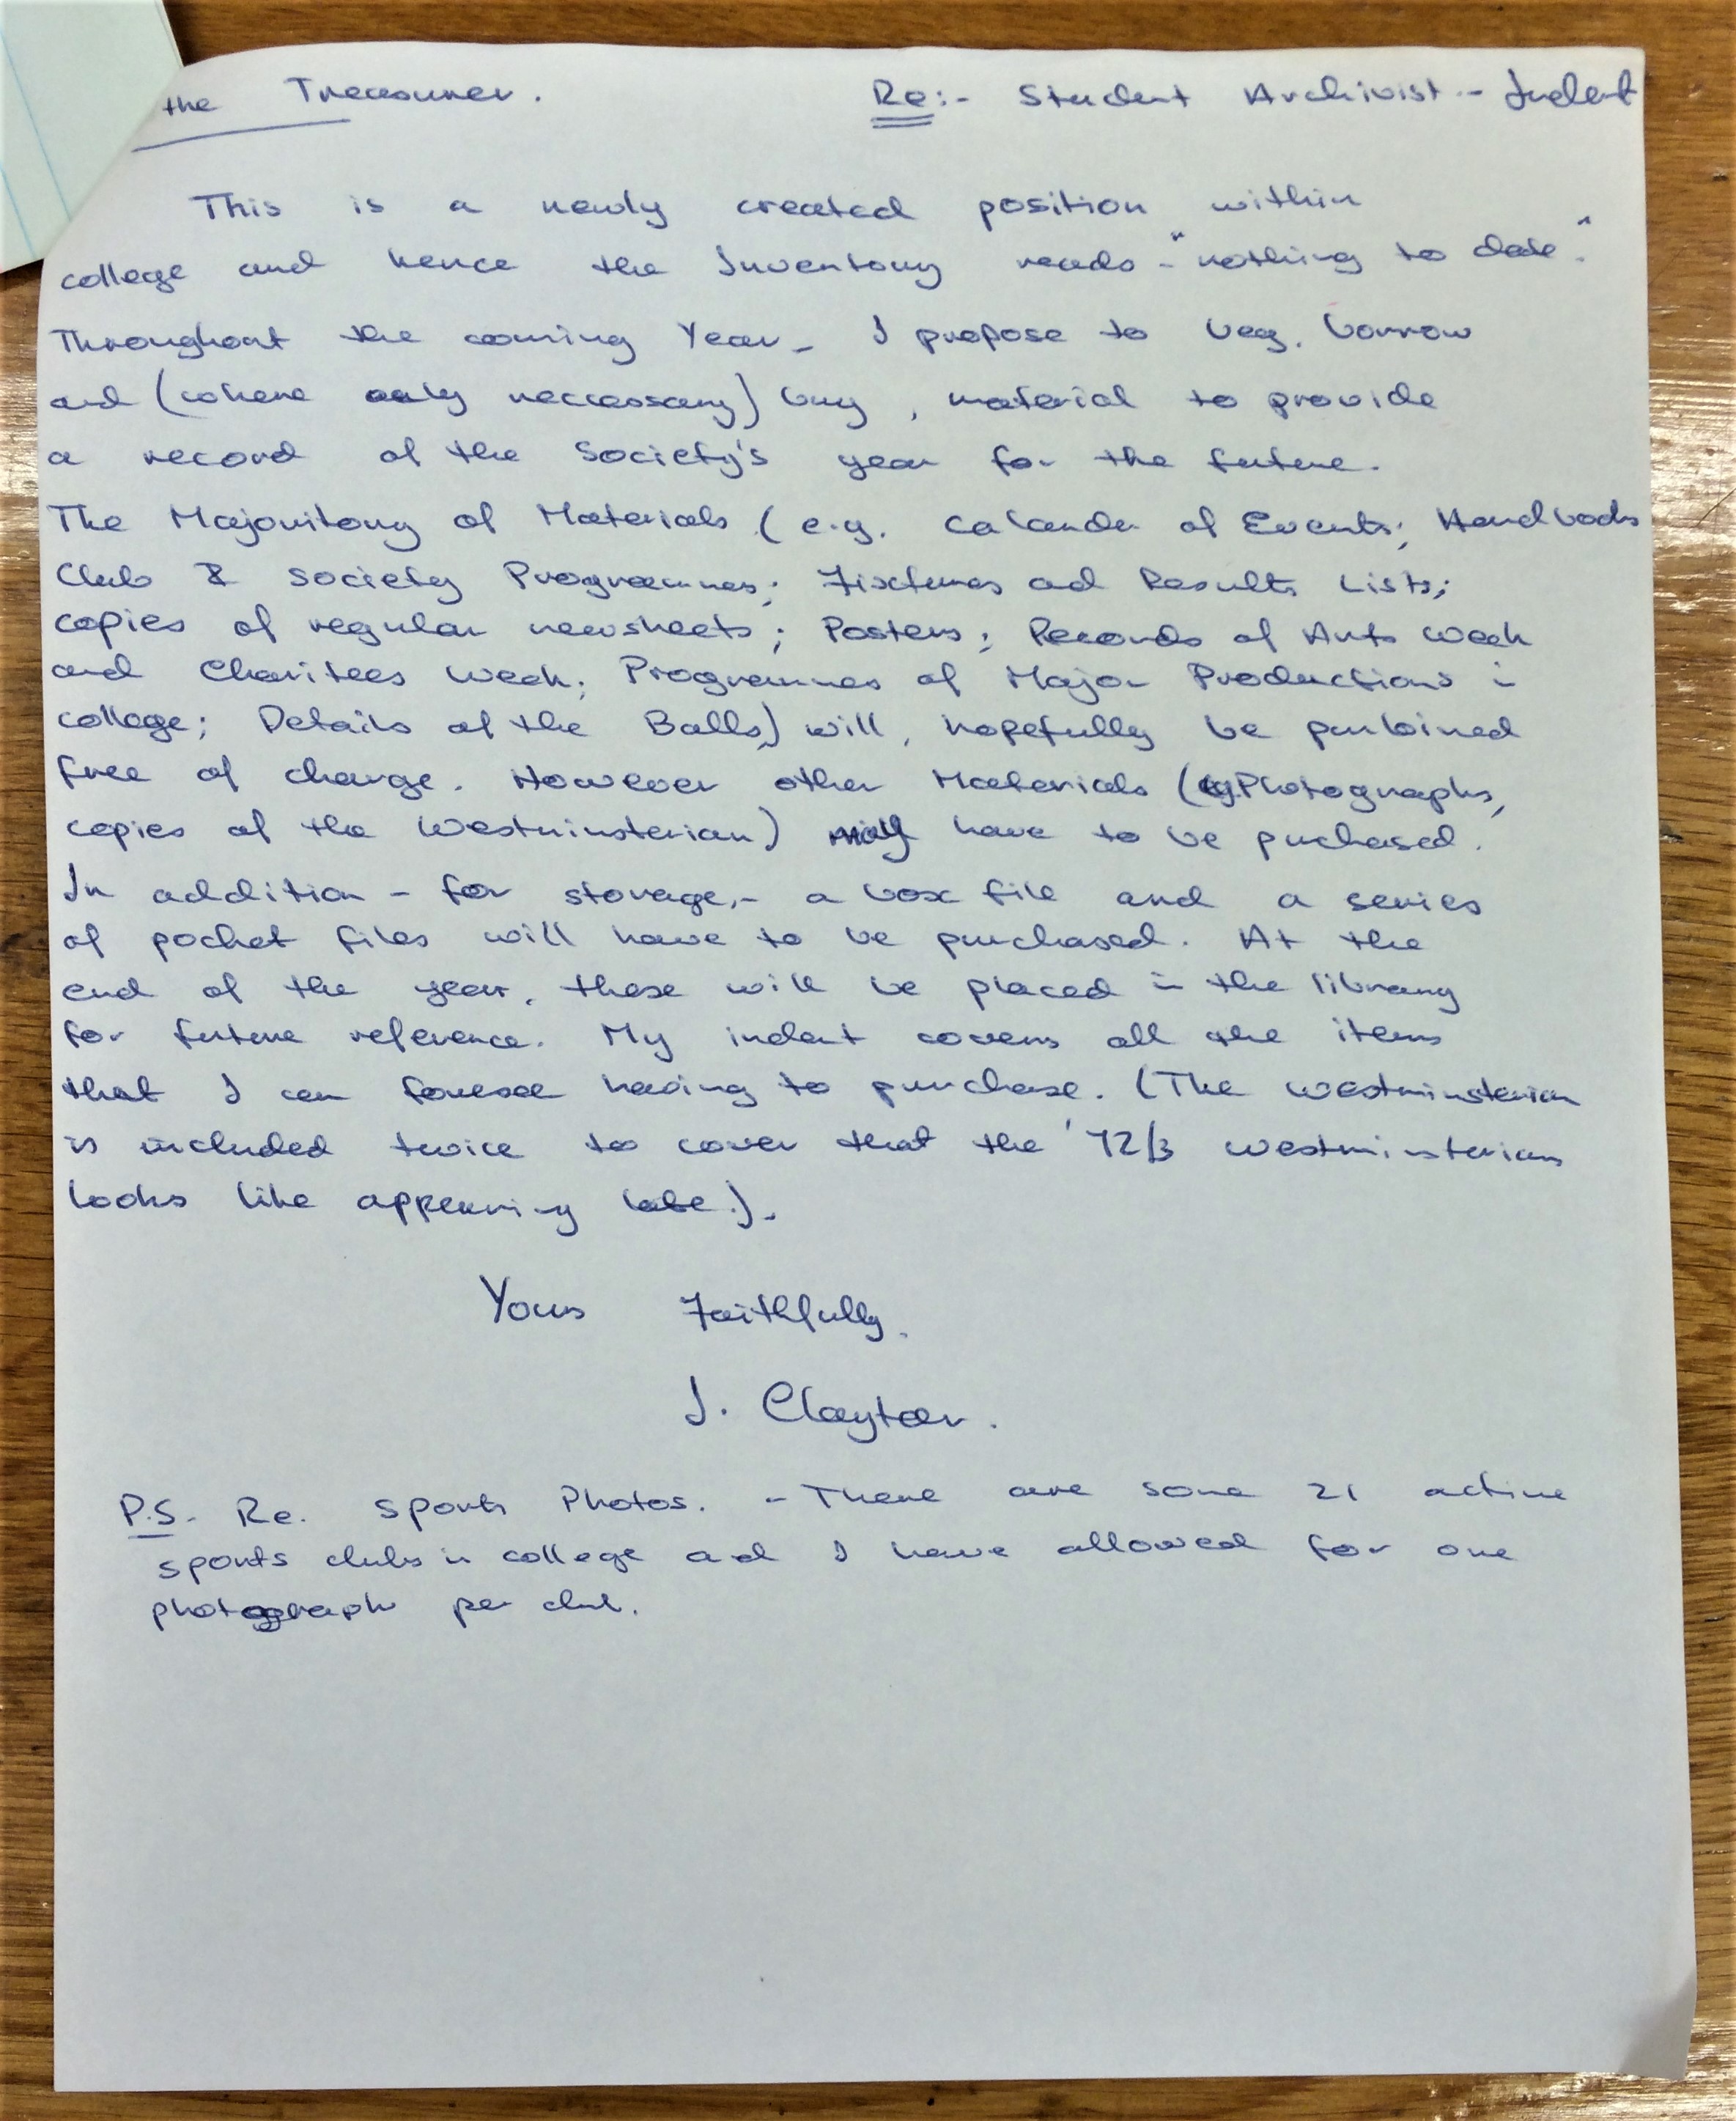 the Treasurer.
Re:- Student Archivist - Indent
This is a newly created position within
college and hence the Inventory reads - "nothing to date."
Throughout the coming Year - I propose to beg, borrow
and (where only neccessary) buy, material to provide
a record of the Society's year for the future.
The Majoritory of Materials (e.g. Calander of Events; Handbooks
Club & Society Programmes; Fixtures and Results Lists;
copies of regular newsheets; Posters; Records of Arts Week
and Charitees Week; Programmes of Major Productions in
college; Details of the Balls) will, hopefully be purloined
free of charge. However other Materials (eg. Photographs,
copies of the Westminsterian) may have to be puchased.
In addition - for storage, - a box file and a series
of pocket files will have to be purchased. At the
end of the year, these will be placed in the library
for future reference. My indent covers all the items
that I can foresee having to purchase. (The Westminsterian
is included twice to cover that the '72/3 Westminsterian
looks like appearing late.).
Yours Faithfully.
J. Clayton.
P.S. Re. Sports Photos. - There are some 21 active
sports clubs in college and I have allowed for one
photograph per club.